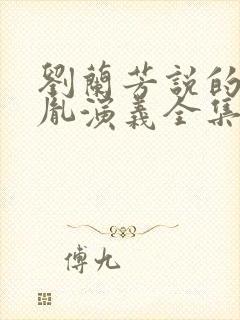 劉蘭芳説的
胤演義全集
傅九